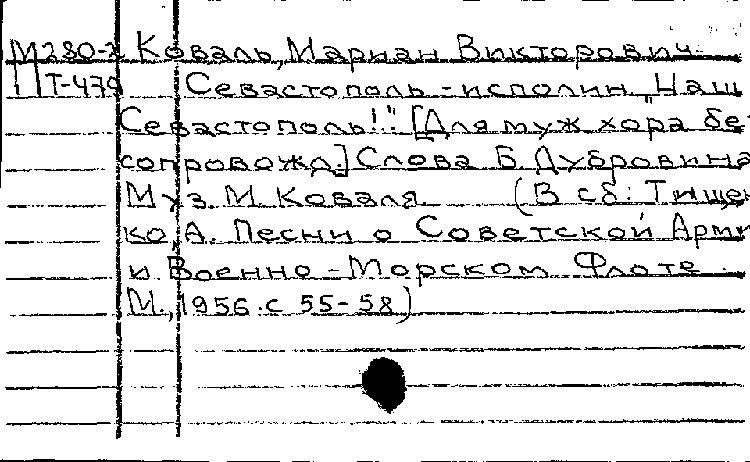 М280-2 Коваль, Мариан Викторович.
Т-479 Севастополь-исполин. „Наш
Севастополь!..“ [Для муж хора бе
сопровожд.] Слова Б. Дубровина
Муз. М. Коваля. (В сб: Тище
ко, А. Песни о Советской Арми
и Военно-Морском Флоте.
М., 1956. с 55-58)